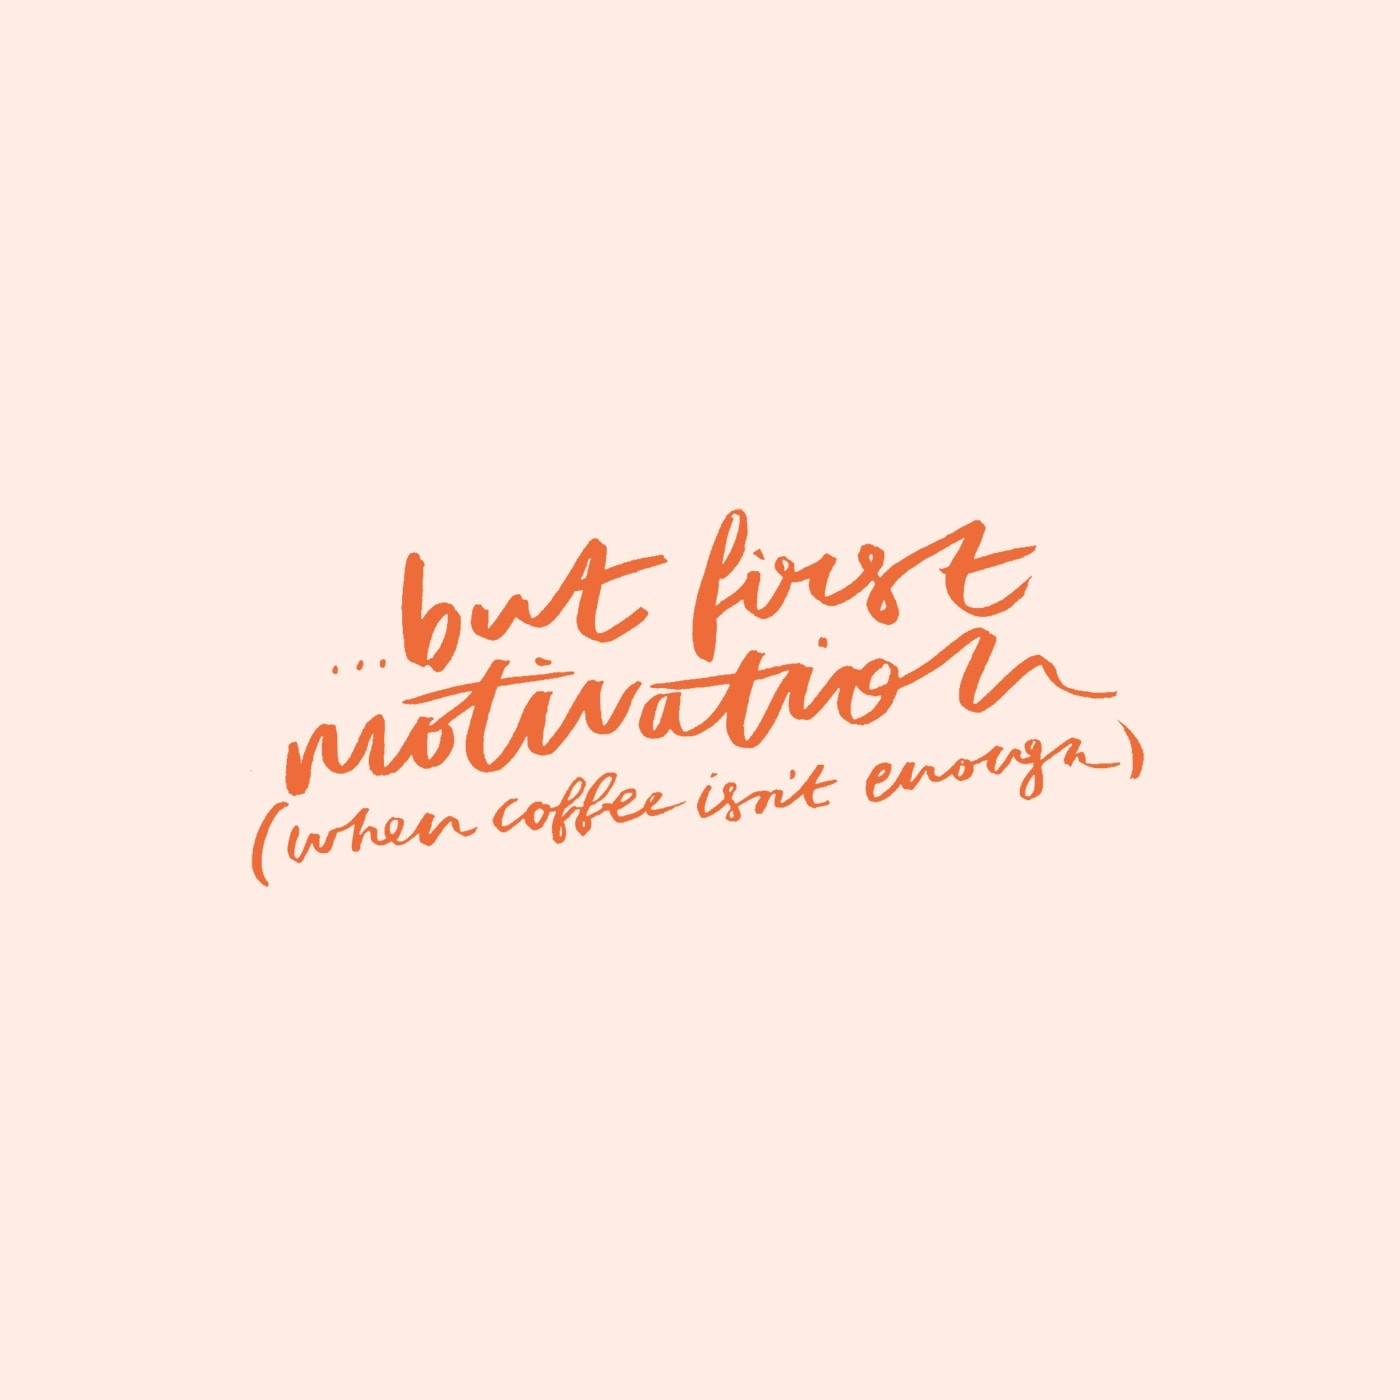 ...but first
motivation
(when coffee isn't enough)